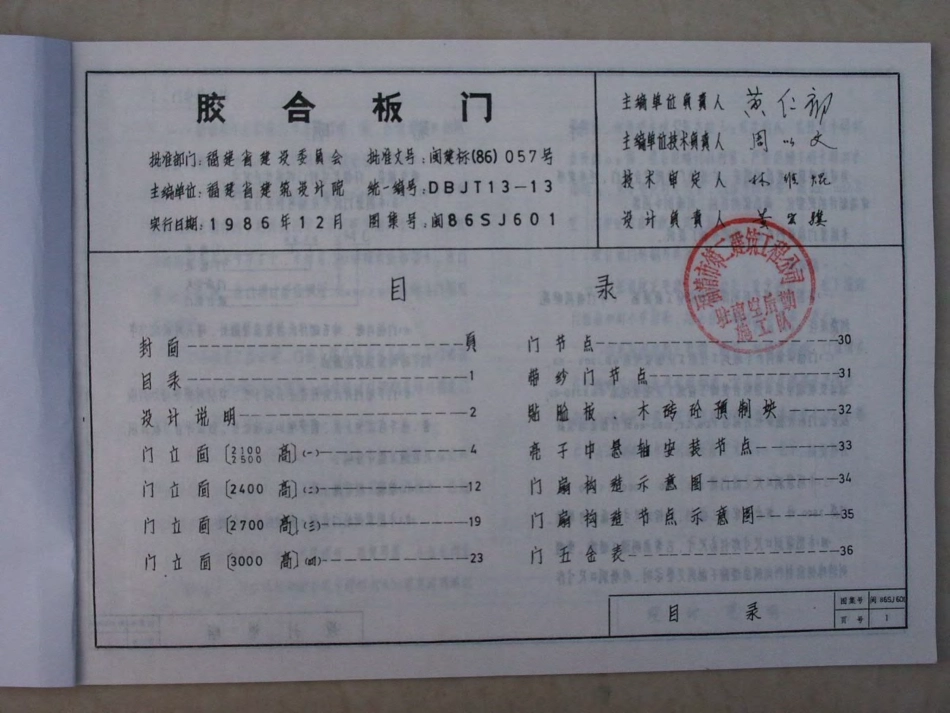 胶合板门
批准部门：福建省建设委员会 批准文号：闽建标(86)057号
主编单位：福建省建筑设计院 统一编号：DBJT13-13
实行日期：1986年12月 图集号：闽86SJ601
主编单位负责人 黄仁
主编单位技术负责人 周 文
技术审定人 林
设计负责人 黄
福清市第二建筑工程公司
施工队
目 录
封面 頁
目录 1
设计说明 2
门立面〔2100 2500 高〕(一) 4
门立面〔2400 高〕(二) 12
门立面〔2700 高〕(三) 19
门立面〔3000 高〕(四) 23
门节点 30
带纱门节点 31
贴脸板 木砖砼预制块 32
亮子中悬轴安装节点 33
门扇构造示意图 34
门扇构造节点示意图 35
门五金表 36
目 录
图集号 闽86SJ601
页号 1